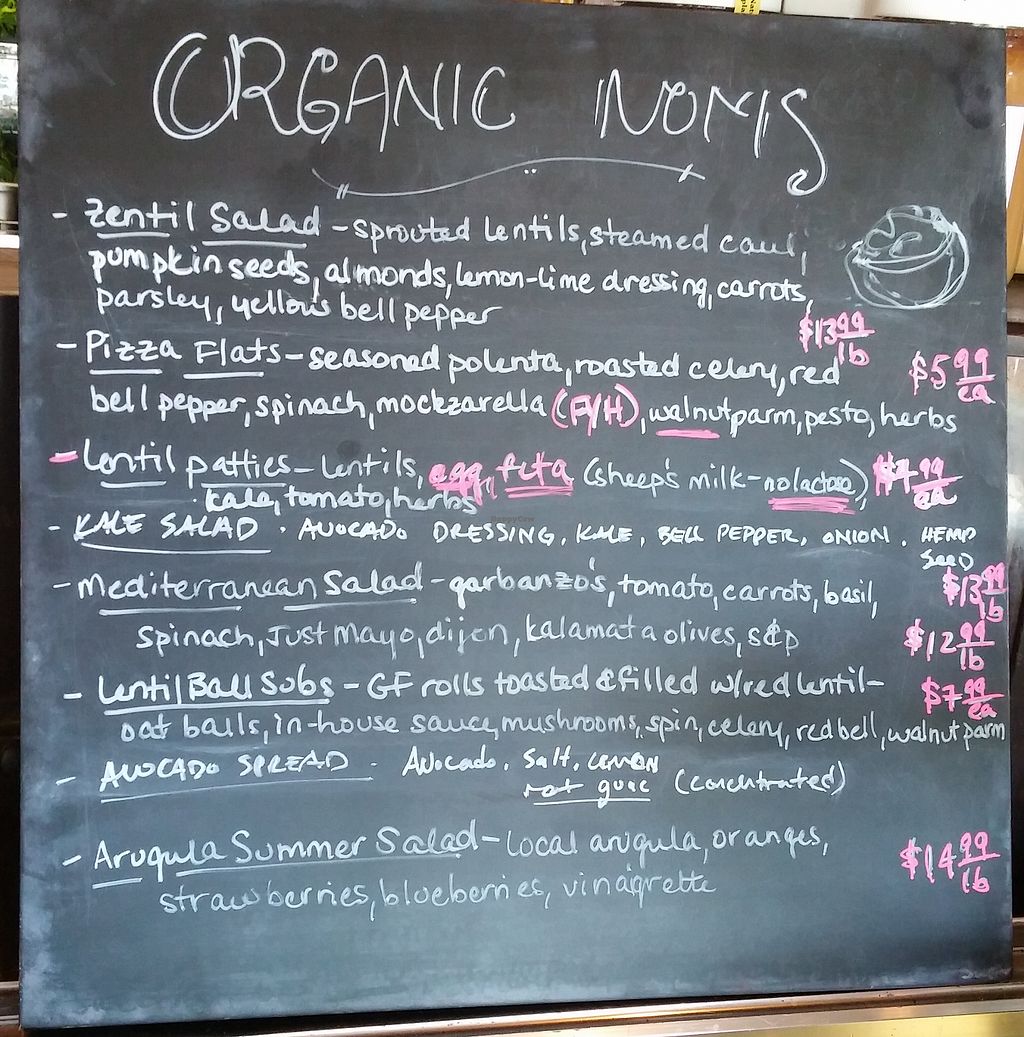 ORGANIC NOMS
- Zentil Salad - sprouted lentils, steamed caul,
pumpkin seeds, almonds, lemon-lime dressing, carrots,
parsley, yellow bell pepper
$13 99/lb
- Pizza Flats - seasoned polenta, roasted celery, red
$5 99/ea
bell pepper, spinach, mockzarella (F/H), walnut parm, pesto, herbs
- Lentil patties - Lentils, egg, feta (sheep's milk - no lactose), $4 99/ea
kale, tomato, herbs
- KALE SALAD . AVOCADO DRESSING, KALE, BELL PEPPER, ONION . HEMP
SEED
$13 99/lb
- Mediterranean Salad - garbanzo's, tomato, carrots, basil,
spinach, Just Mayo, dijon, kalamata olives, s&p
$12 99/lb
- Lentil Ball Subs - GF rolls toasted & filled w/red lentil-
$7 99/ea
oat balls, in-house sauce, mushrooms, spin, celery, red bell, walnut parm
- AVOCADO SPREAD . Avocado, Salt, LEMON
not guac (concentrated)
- Arugula Summer Salad - Local arugula, oranges,
$14 99/lb
strawberries, blueberries, vinaigrette